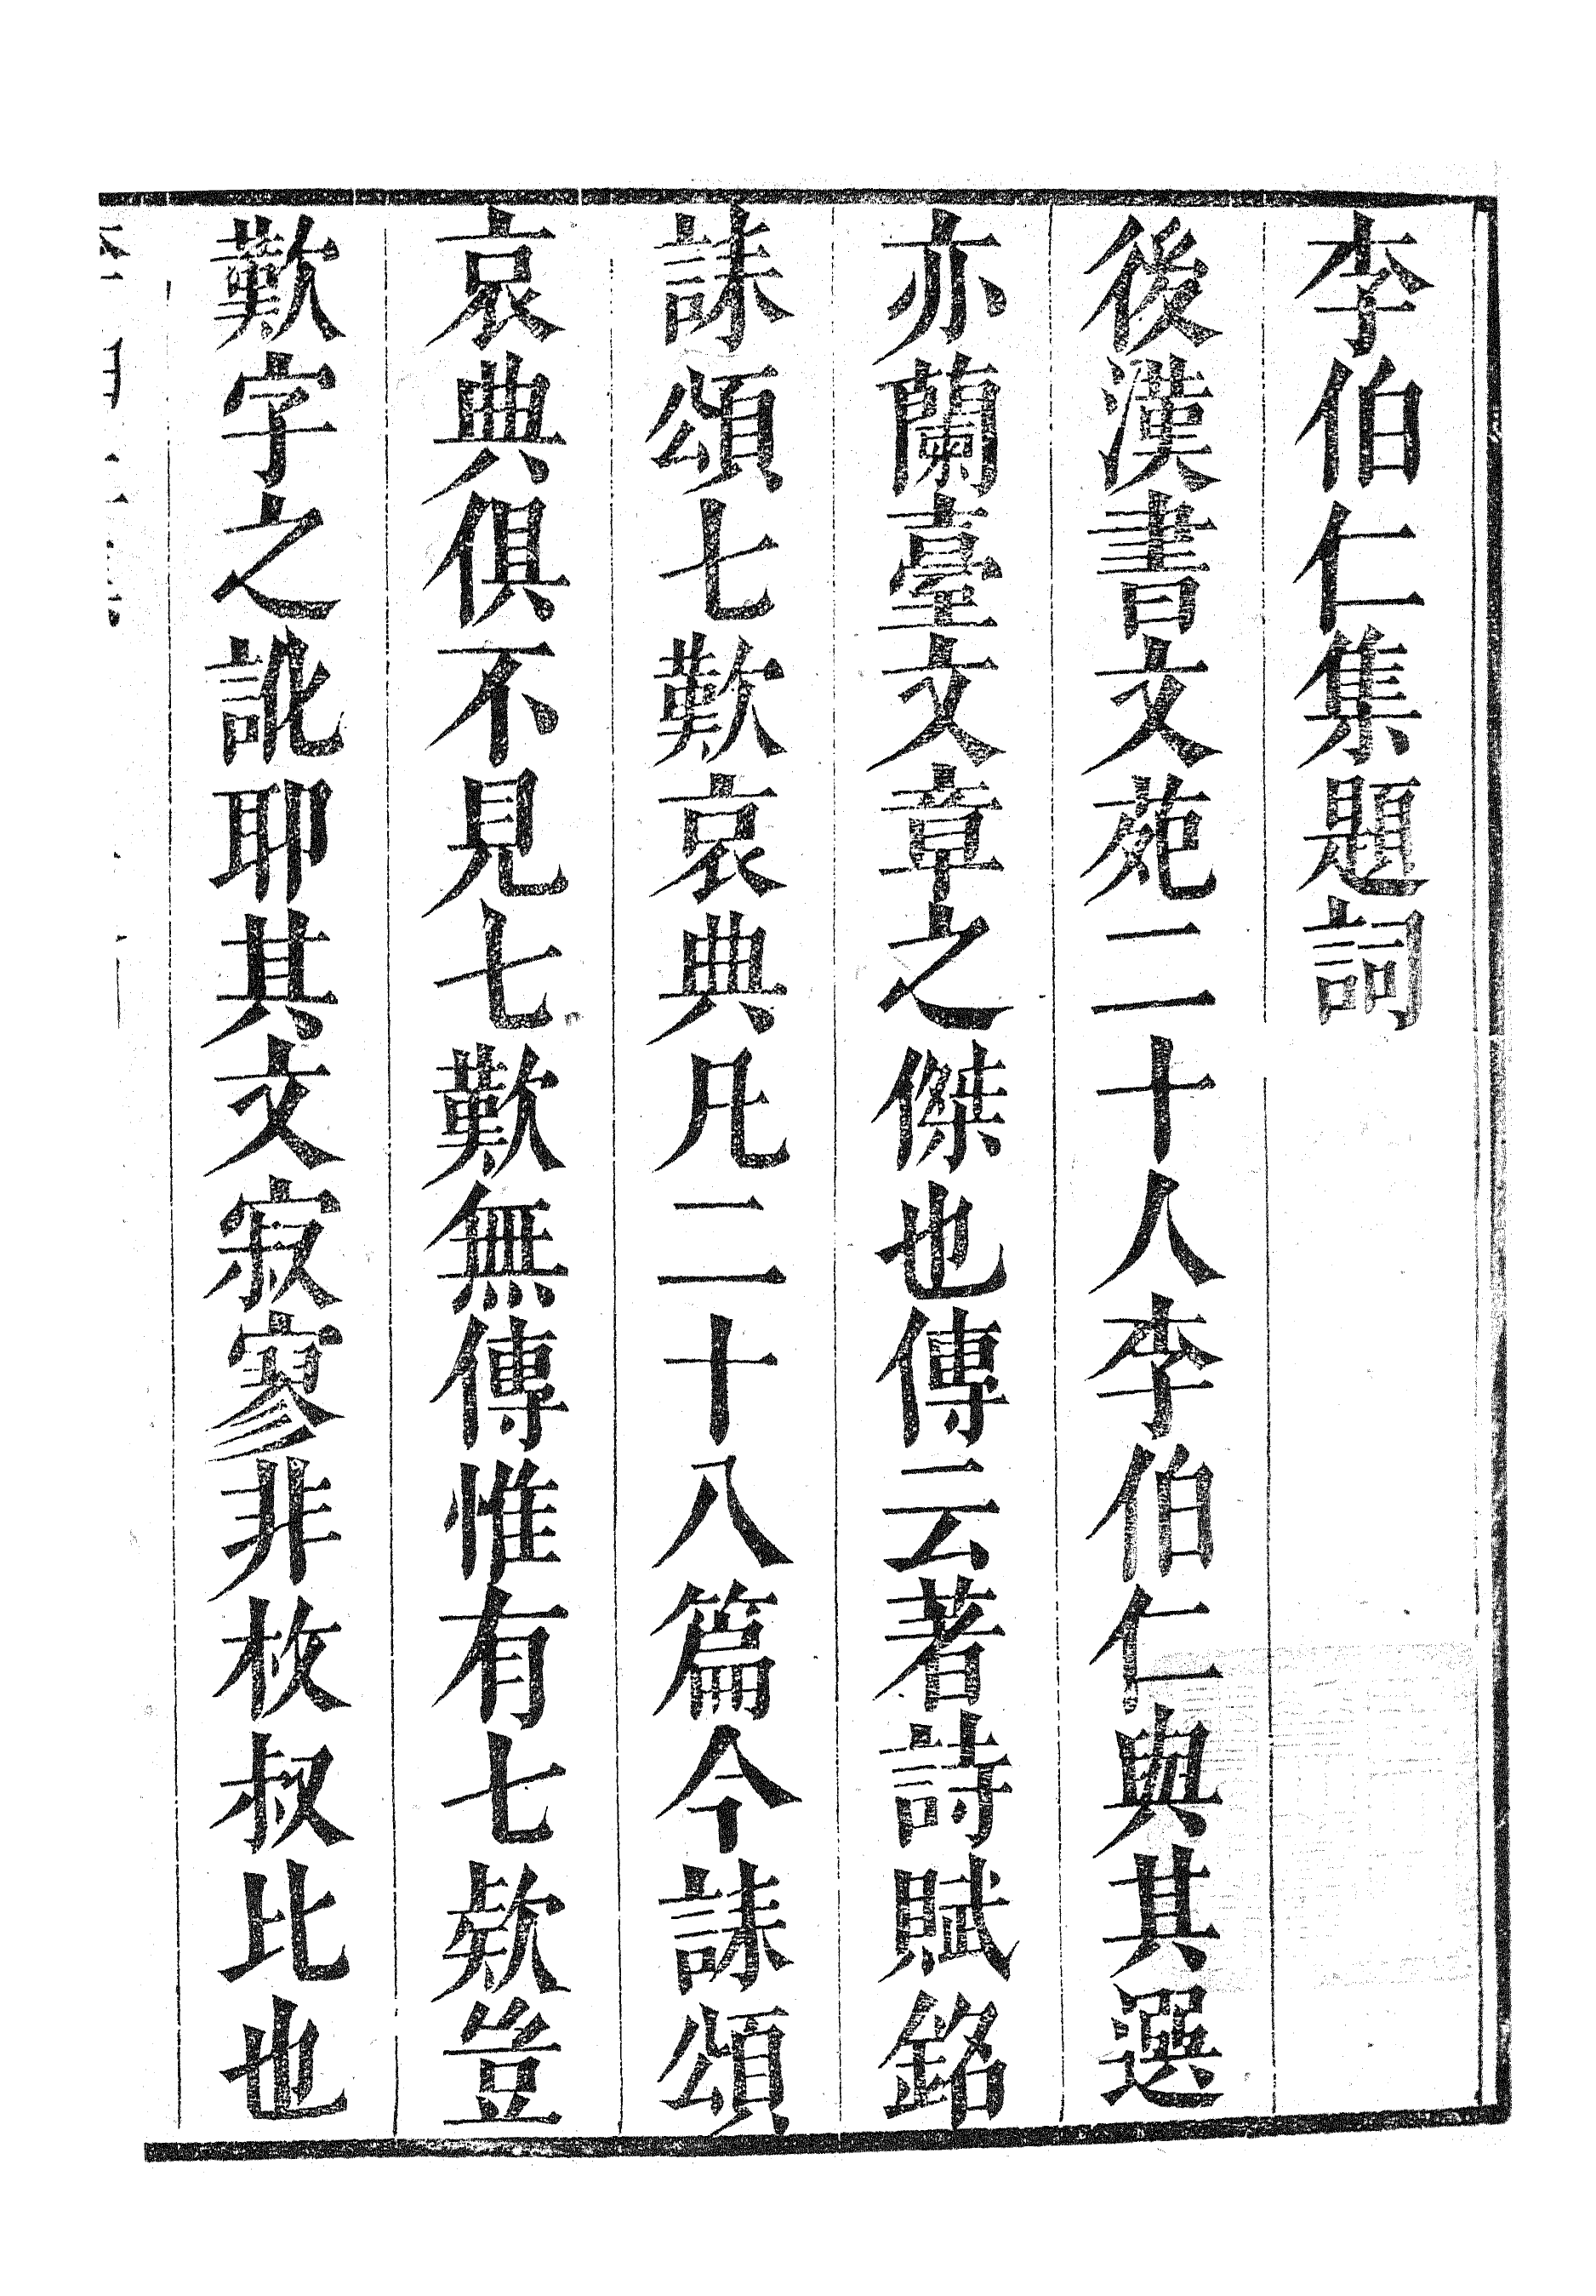 李伯仁集題詞
後漢書文苑二十人李伯仁與其選
亦蘭臺文章之傑也傳云著詩賦銘
誄頌七歎哀典凡二十八篇今誄頌
哀典俱不見七歎無傳惟有七欵豈
歎字之訛耶其文寂寥非枚叔比也